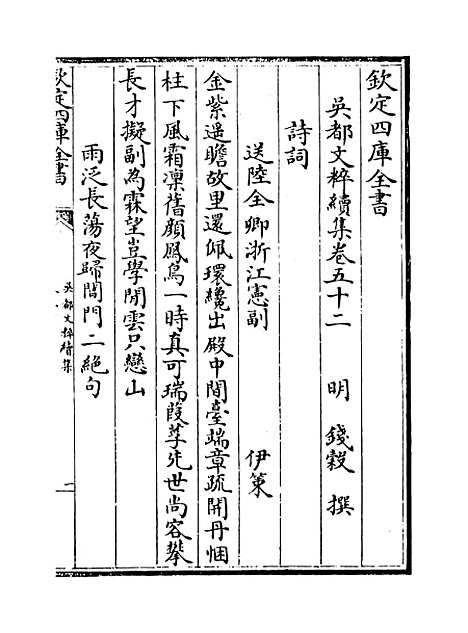 欽定四庫全書
吳都文粹續集卷五十二　明　錢穀　撰
詩詞
送陸全卿浙江憲副　伊策
金紫遥瞻故里還佩環纔出殿中間臺端章疏開丹悃
柱下風霜凜舊顔鳳鳥一時真可瑞葭莩先世尚容攀
長才擬副為霖望豈學閒雲只戀山
雨泛長蕩夜歸閶門二絶句
欽定四庫全書
吳都文粹續集
一